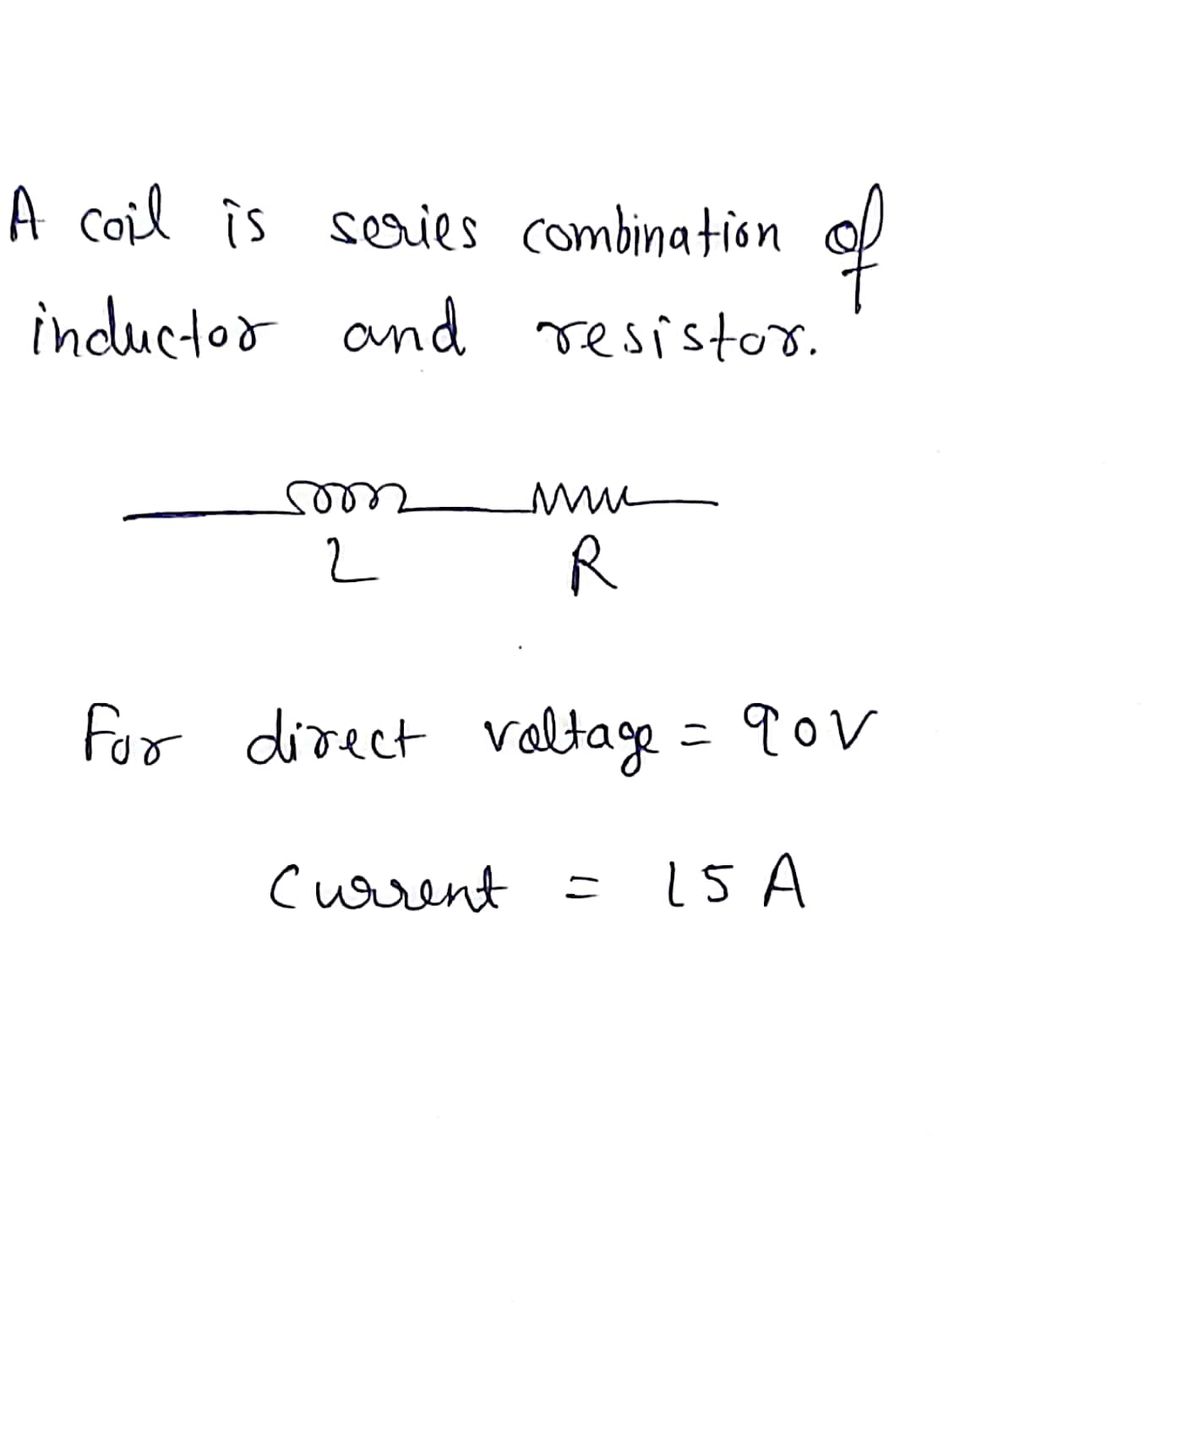 A coil is series combination of
inductor and resistor.
L R
For direct voltage = 90V
Current = 15 A